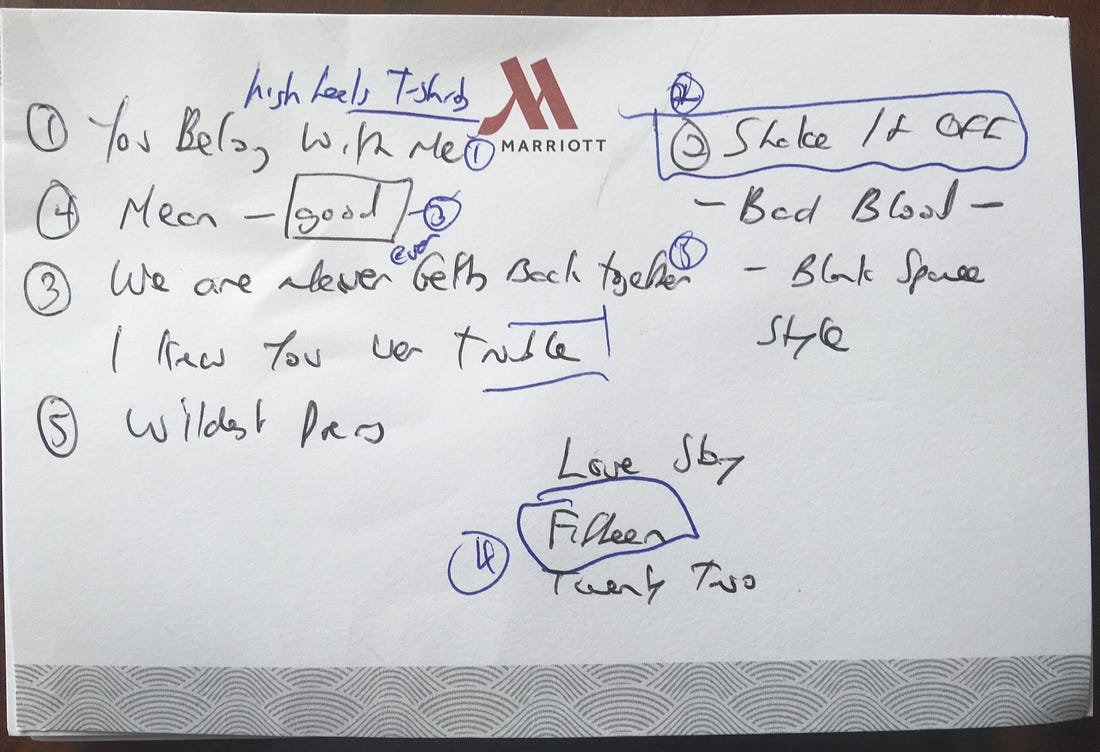 high heels T-shirts
MARRIOTT
① You Belong With Me ①
④ Mean - good - ③
③ We are Never ever Gettg Back together ⑤
I knew You wer trouble
⑤ Wildest Drems
②
② Shake It OFF
- Bad Blood -
- Blank Space
Style
Love Story
④ Fifteen
Twenty Two